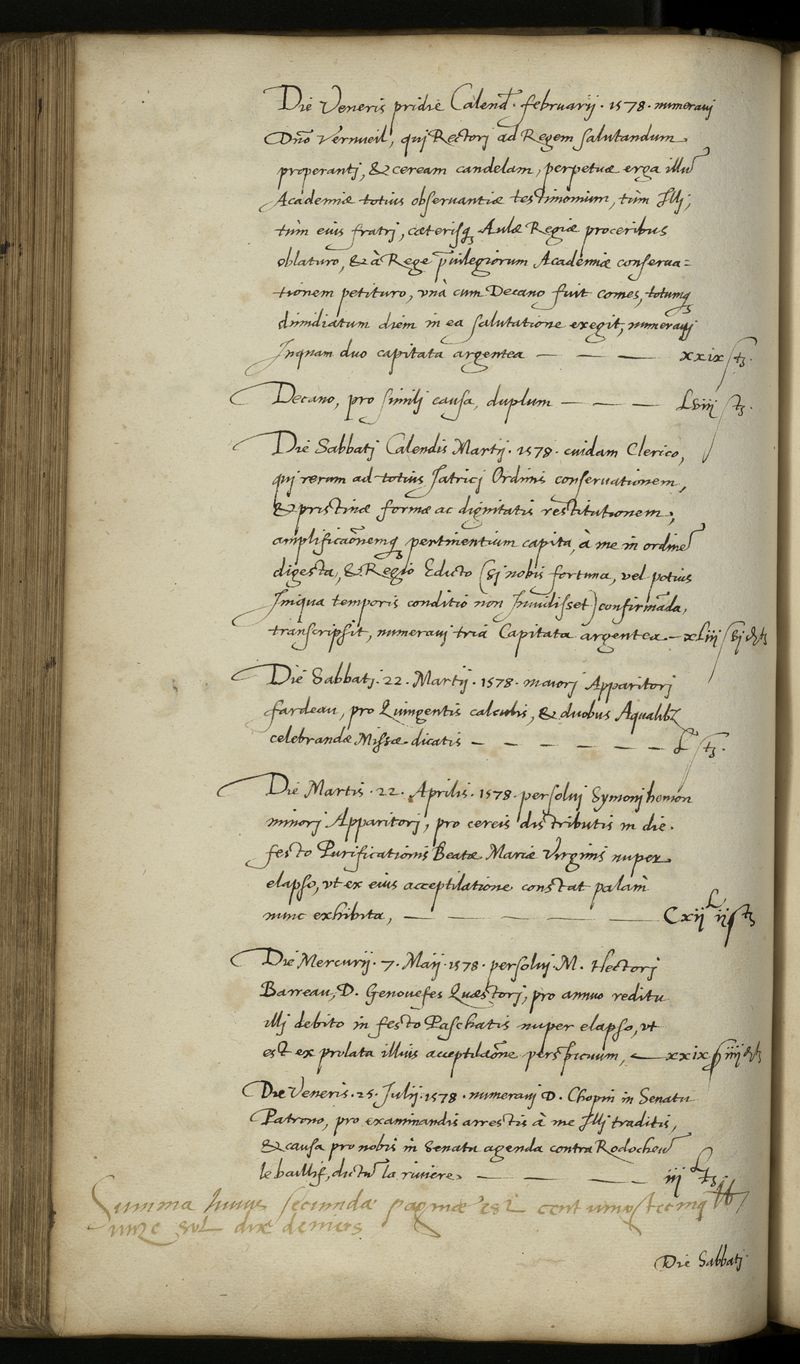 Die Veneris pridie Calend. februarij. 1578. numeravj
Dno Verrueil, quj Rectorj ad Regem salutandum
properantj, & ceream candelam, perpetuæ erga illũ
Academiæ totius observantiæ testimonium, tùm Illj,
tùm eius fratrj, cæterisq; Aulæ Regiæ proceribus
oblaturo, & à Rege p̃uilegiorum Academiæ conserua=
tionem petituro, vnà cum Decano fuit comes, totumq;
dimidiatum diem in ea salutatione exegit, numeravj
Inquam duo capitata argentea — — — xxix ß ts.
Decano, pro similj causa, duplum — — — Lviij ß ts.
Die Sabbatj Calendis Martij. 1578. cuidam Clerico,
quj rerum ad totius Iatricj Ordinis conseruationem,
& pristinæ formæ ac dignitatis restitutionem,
amplificaõnemq; pertinentium capita, à me in ordinẽ
digesta, & Regio Edicto (sj nobis fortuna, vel potius
Iniqua temporis conditio non Inuidisset) confirmãda,
transcripsit, numeravj tria Capitata argentea. — xLiij ß vj d ts
Die Sabbatj. 22. Martij. 1578. maiorj Apparitorj
fardeau, pro Quingentis calculis, & duobus Aqualibz
celebrandæ Missæ dicatis — — — — — — L ß ts.
Die Martis. 22. Aprilis. 1578. persoluj Symonj hemon
minorj Apparitorj, pro cereis distributis in die
festo Purificationis Beatæ Mariæ Virginis nuper
elapso, vt ex eius acceptilatione constat palàm
nunc exhibita, — — — — — Cxij L ij ß ts
Die Mercurij. 7. Maij. 1578. persoluj. M. Hectorj
Barreau, D. Genouefes Quæstorj, pro annuo reditu
illj debito in festo Paschatis nuper elapso, vt
est ex prolata illius acceptilaõne perspicuum, — xxix ß iiij d ts
Die Veneris. 25. Julij. 1578. numeravj D. Chopin in Senatu
Patrono, pro examinandis arrestis à me Illj traditis,
& causa pro nobis in Senatu agenda contra Rodocheũ
le baillif, dictũ la riuiere. — — — — iij L ts.
Summa huius secundæ paginæ est cent
unze sol dix deniers
Die Sabbatj